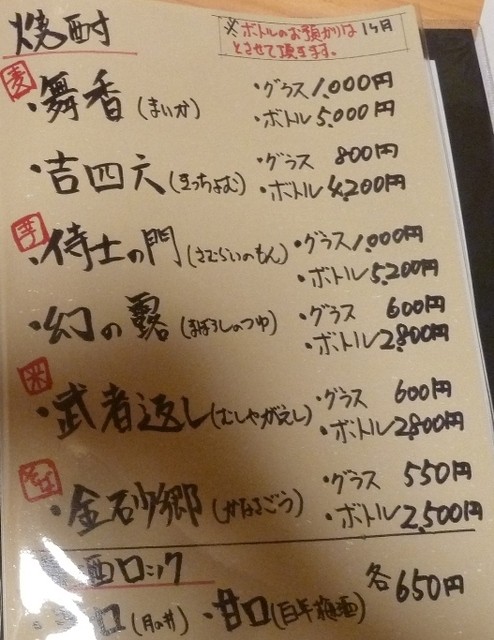 焼酎
※ボトルのお預かりは1ヶ月
とさせて頂きます。
麦
・舞香(まいか)
・グラス 1,000円
・ボトル 5,000円
・吉四六(きっちょむ)
・グラス 800円
・ボトル 4,200円
芋
・侍士の門(さむらいのもん)
・グラス 1,000円
・ボトル 5,200円
・幻の露(まぼろしのつゆ)
・グラス 600円
・ボトル 2,800円
米
・武者返し(むしゃがえし)
・グラス 600円
・ボトル 2,800円
そば
・金砂郷(かなさごう)
・グラス 550円
・ボトル 2,500円
酒ロック
口(月の井) ・甘口(百年梅酒) 各650円